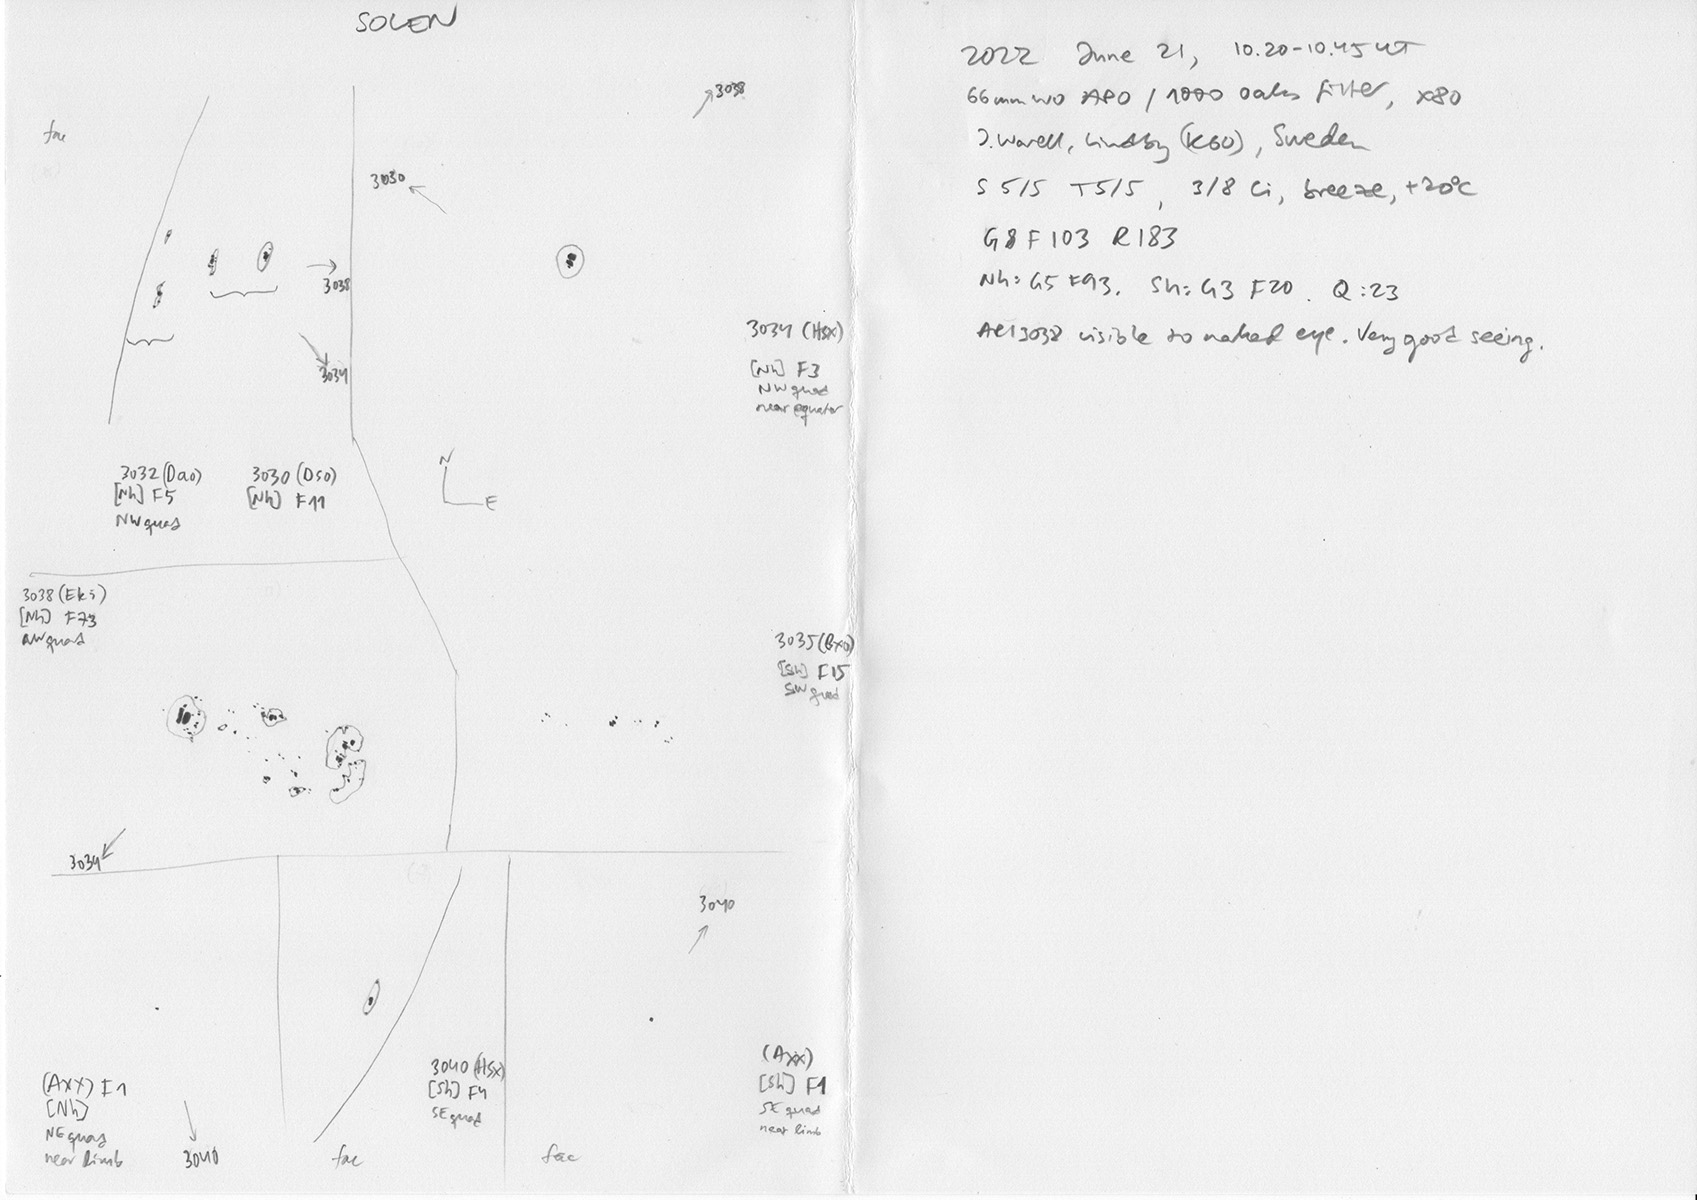 SOLEN
fac
3038
3030
3038
3034
3034 (Hsx)
[Nh] F3
NW quad
near equator
N
E
3032 (Dao)
[Nh] F5
NW quad
3030 (Dso)
[Nh] F11
3038 (Eki)
[Nh] F73
NW quad
3035 (Bxo)
[Sh] F15
SW quad
3034
3040
(Axx) F1
[Nh]
NE quad
near limb
3040
3040 (Hsx)
[Sh] F4
SE quad
fac
fac
(Axx)
[Sh] F1
SE quad
near limb
2022 June 21, 10.20-10.45 UT
66mm WO APO / 1000 Oaks Filter, x80
J. Warell, Lindby (K60), Sweden
S 5/5 T 5/5, 3/8 Ci, breeze, +20°C
G8 F103 R183
Nh: G5 F93. Sh: G3 F20. Q: 23
AR13038 visible to naked eye. Very good seeing.